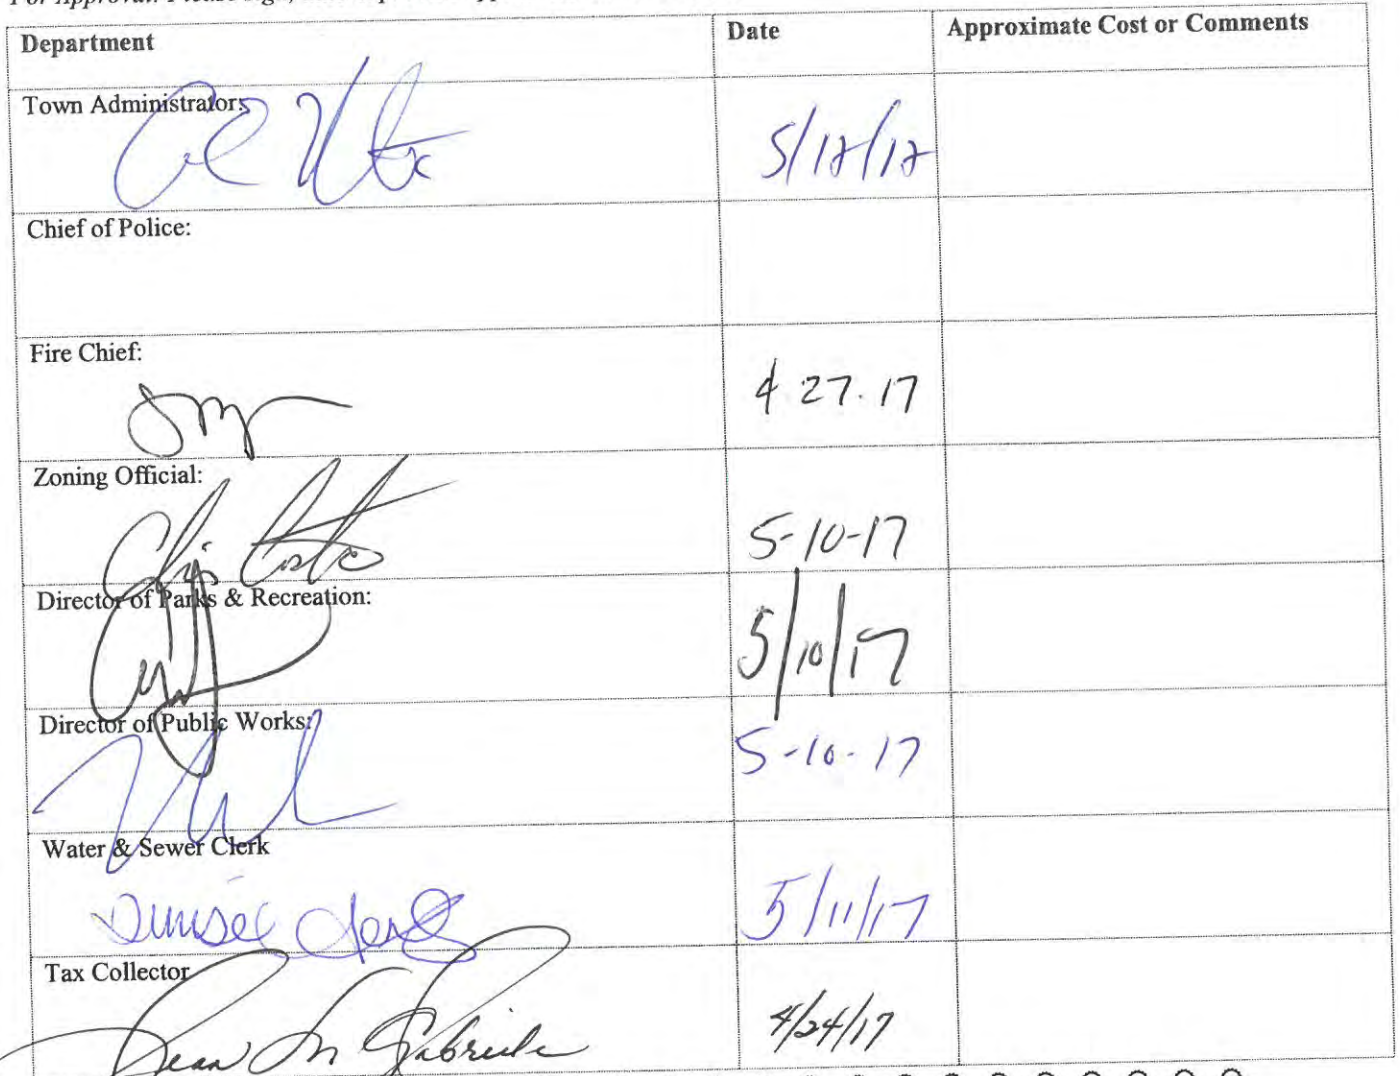 For Approval: Please sign,
Department Date Approximate Cost or Comments
Town Administrator: 5/17/17
Chief of Police:
Fire Chief: 4.27.17
Zoning Official: 5-10-17
Director of Parks & Recreation: 5/10/17
Director of Public Works: 5-10-17
Water & Sewer Clerk 5/11/17
Denise
Tax Collector 4/24/17